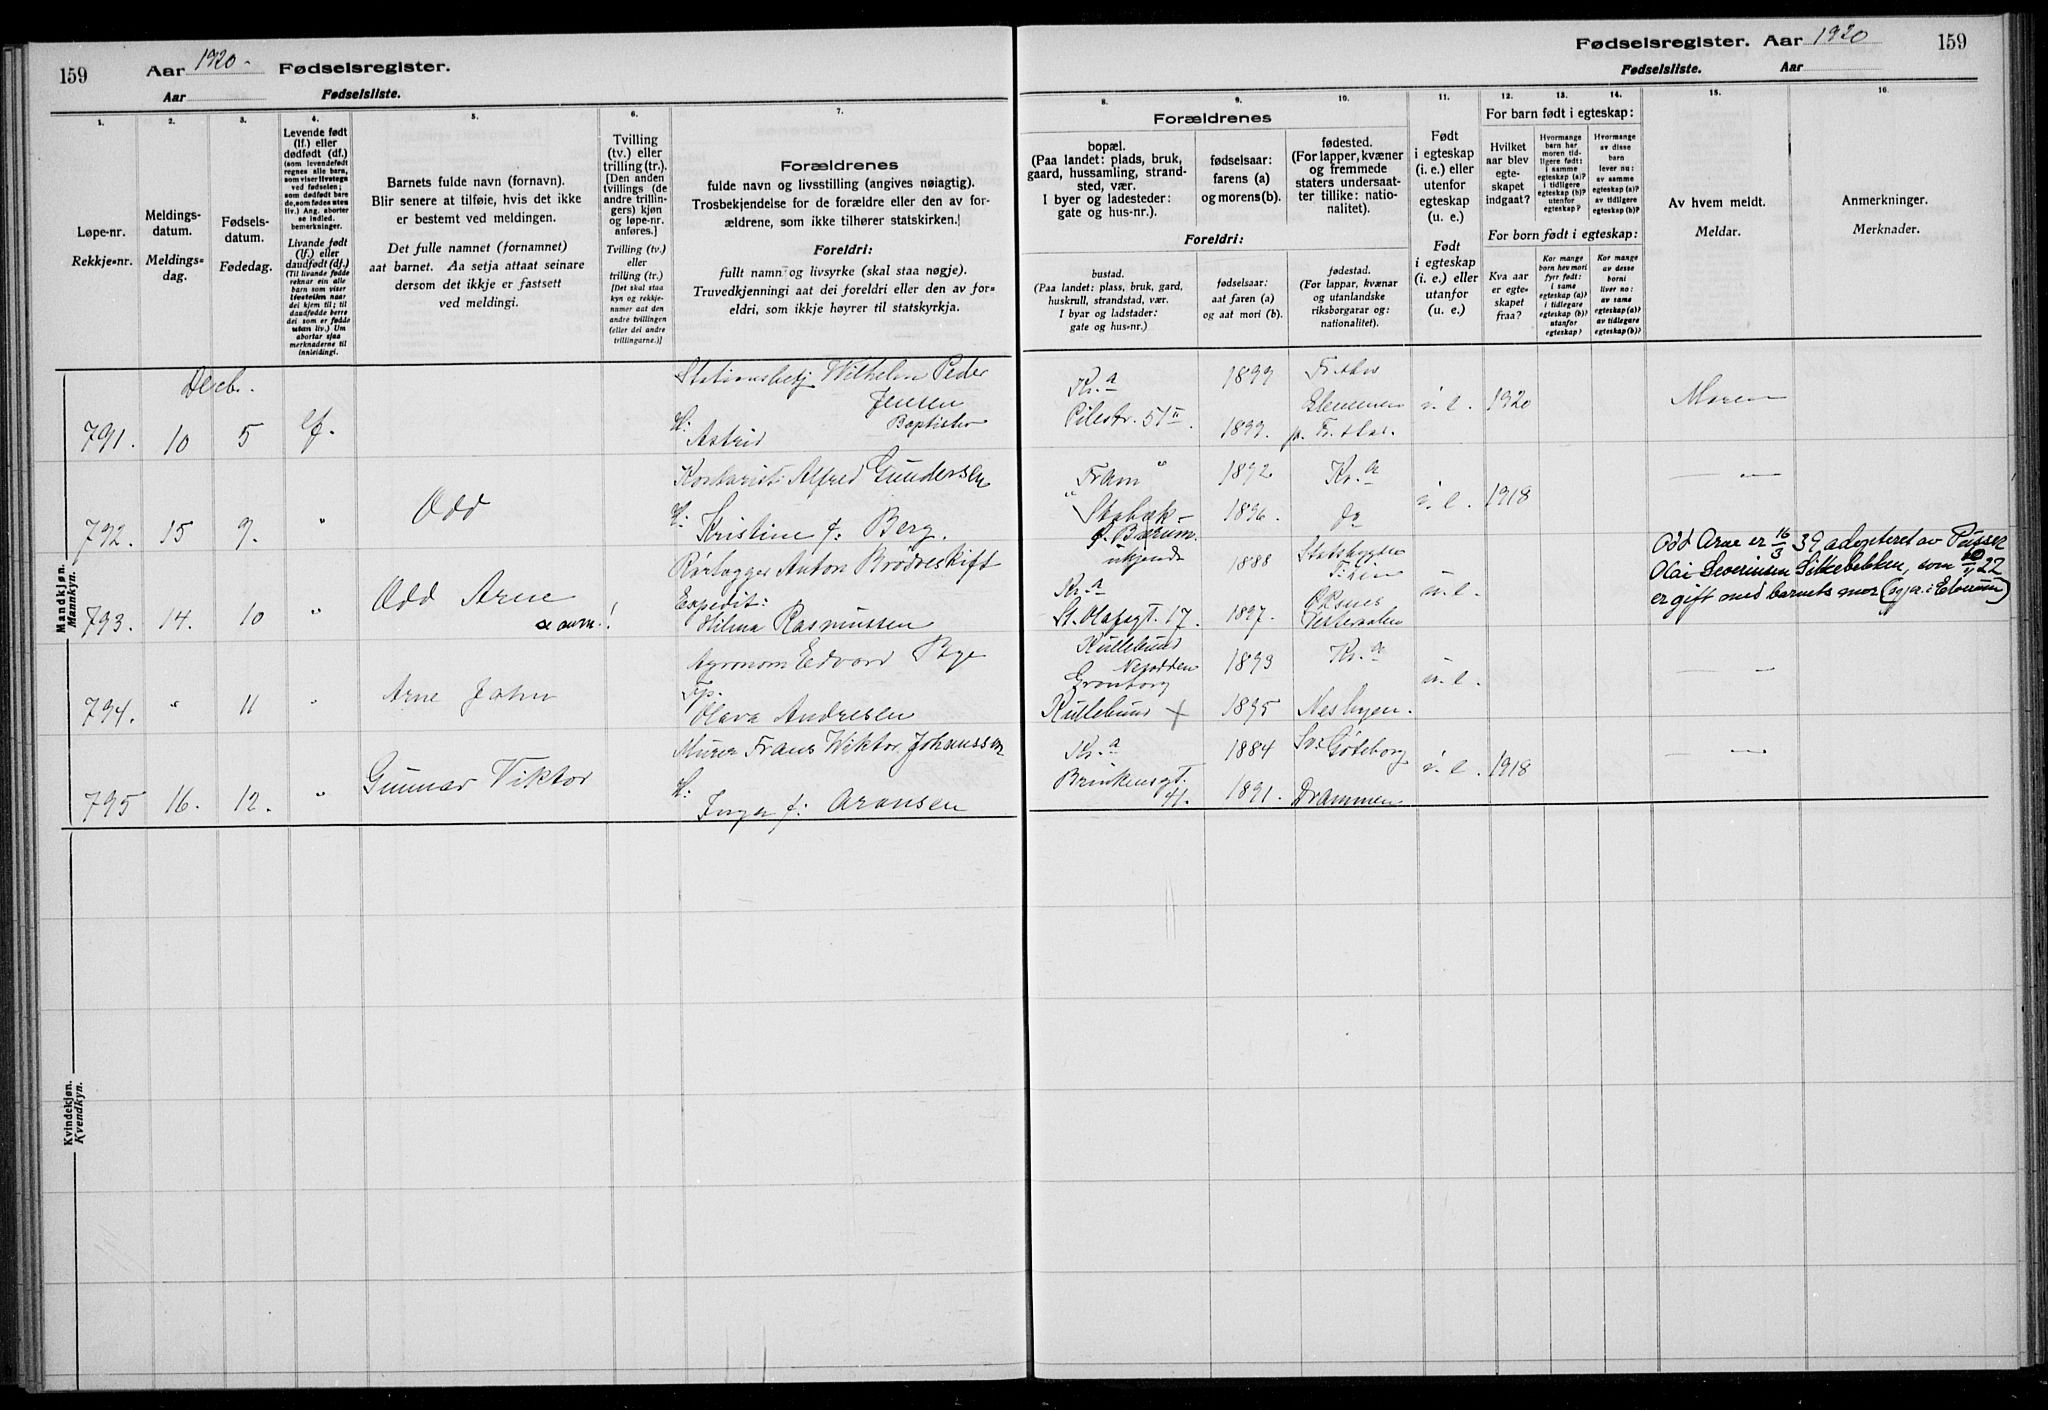 159
Aar 1920. Fødselsregister.
Aar Fødselsliste.
1. 2. 3. 4. 5. 6. 7.
Løpe-nr.
Rekkje-nr.
Meldings-
datum.
Meldings-
dag.
Fødsels-
datum.
Fødedag.
Levende født
(lf.) eller
dødfødt (df.)
(som levendefødt
regnes alle barn,
som viser livstegn
ved fødselen;
som dødfødt bare
de, som fødes uten
liv.) Ang. aborter
se indled.
bemerkninger.
Livande født
(lf.) eller
daudfødt (df.)
(Til livande fødde
reknar ein alle
barn som viser
livsteikn naar
dei kjem til; til
daudfødde berre
dei som er fødde
utan liv.) Um
abortar sjaa
merknaderne til
innleidingi.
Barnets fulde navn (fornavn).
Blir senere at tilføie, hvis det ikke
er bestemt ved meldingen.
Det fulle namnet (fornamnet)
aat barnet. Aa setja attaat seinare
dersom det ikkje er fastsett
ved meldingi.
Tvilling
(tv.) eller
trilling (tr.).
[Den anden
tvillings (de
andre trillin-
gers) kjøn
og løpe-nr.
anføres.]
Tvilling (tv.)
eller
trilling (tr.)
[Det skal staa
kyn og rekkje-
numer aat den
andre tvillingen
(eller dei andre
trillingarne.)]
Forældrenes
fulde navn og livsstilling (angives nøiagtig).
Trosbekjendelse for de forældre eller den av for-
ældrene, som ikke tilhører statskirken.
Foreldri:
fullt namn og livsyrke (skal staa nøgje).
Truvedkjenningi aat dei foreldri eller den av for-
eldri, som ikkje høyrer til statskyrkja.
Mandkjøn.
Mannkyn.
Decb.
791. 10 5 lf.
Stationsbetj Wilhelm Peder
Jensen
Baptister
H: Astrid
792. 15 9. " Odd
Kontorist Alfred Gundersen
H: Kristine f: Berg.
793. 14. 10 " Odd Arne
se anm.!
Rørlægger Anton Brødreskift
Expedit:
Hilma Rasmussen
794. " 11 " Arne John
Agronom Edvard Bye
Fp.
Olava Andresen
795 16. 12. " Gunnar Viktor
Murer Frans Wiktor Johansson
H: Inga f: Aronsen
Kvindekjøn.
Kvendkyn.
Fødselsregister. Aar 1920 159
Fødselsliste. Aar
8. 9. 10. 11. 12. 13. 14. 15. 16.
Forældrenes
bopæl.
(Paa landet: plads, bruk,
gaard, hussamling, strand-
sted, vær.
I byer og ladesteder:
gate og hus-nr.).
fødselsaar:
farens (a)
og morens (b).
fødested.
(For lapper, kvæner
og fremmede
staters undersaat-
ter tillike: natio-
nalitet).
Foreldri:
bustad.
(Paa landet: plass, bruk, gard,
huskrull, strandstad, vær.
I byar og ladstader:
gate og hus-nr.)
fødselsaar:
aat faren (a)
og aat mori (b).
fødestad.
(For lappar, kvænar
og utanlandske
riksborgarar og:
nationalitet).
Født
i egteskap
(i. e.) eller
utenfor
egteskap
(u. e.)
Født
i egteskap
(i. e.) eller
utanfor
(u. e.)
For barn født i egteskap:
Hvilket
aar blev
egte-
skapet
indgaat?
Hvormange
barn har
moren tid-
ligere født:
i samme
egteskap (a)?
i tidligere
egteskap (b)?
utenfor
egteskap?
Hvormange
av disse
barn
lever nu:
av samme
egteskap (a)?
av tidligere
egteskap (b)?
For born født i egteskap:
Kva aar
er egte-
skapet
fraa?
Kor mange
born hev mori
fyrr født:
i same
egteskap (a)?
i tidlegare
egteskap (b)?
utanfor
egteskap?
Kor mange
av desse
borni
liver no:
av same
egteskap (a)?
av tidlegare
egteskap (b)?
Av hvem meldt.
Meldar.
Anmerkninger.
Merknader.
Kr.a 1899 Fr.stad
Pilestr. 51 II. 1899. p. Fr.stad. i. e. 1920 Moren
"Fram" 1892 Kr.a
Stabæk - 1896. do i. e. 1918 — " —
p. Bærum.
ukjendt 1888 Stadsbygden
Kr.a
St. Olafsgt. 17. 1897. Øksnes
Vesteraalen u. e.
Odd Arne er 16/3 39 adopteret av
Olai Severinsen Sillebekken, som 22
er gift med barnets mor
Nesodden 1893 Kr.a
Grønborg u. e. — " —
1895 Nesbyen.
Kr.a 1884 Sv: Gøteborg
Brinkensgt.
41. 1891. Drammen i. e. 1918 — " —